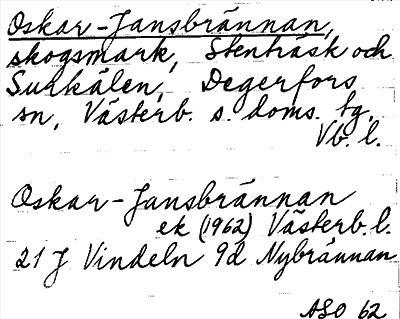 Oskar-Jansbrännan,
skogsmark, Stenträsk och
Surkålen, Degerfors
sn, Västerb. s. doms. tg,
Vb. l.
Oskar-Jansbrännan
ek (1962) Västerb. l.
21 J Vindeln 9d Nybrännan
ASO 62